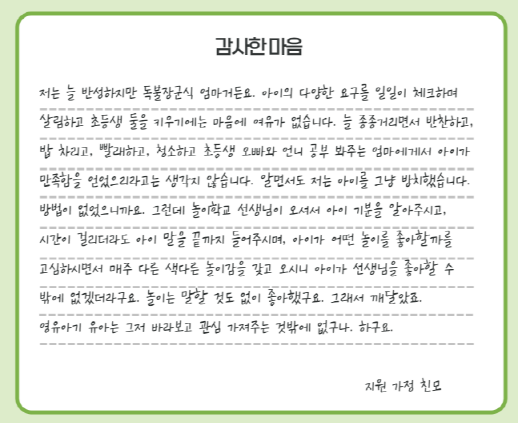 감사한 마음
저는 늘 반성하지만 독불장군식 엄마거든요. 아이의 다양한 요구를 일일이 체크하며
살림하고 초등생 둘을 키우기에는 마음에 여유가 없습니다. 늘 종종거리면서 반찬하고,
밥 차리고, 빨래하고, 청소하고 초등생 오빠와 언니 공부 봐주는 엄마에게서 아이가
만족함을 얻었으리라고는 생각지 않습니다. 알면서도 저는 아이를 그냥 방치했습니다.
방법이 없었으니까요. 그런데 놀이학교 선생님이 오셔서 아이 기분을 알아주시고,
시간이 걸리더라도 아이 말을 끝까지 들어주시며, 아이가 어떤 놀이를 좋아할까를
고심하시면서 매주 다른 색다른 놀이감을 갖고 오시니 아이가 선생님을 좋아할 수
밖에 없겠더라구요. 놀이는 말할 것도 없이 좋아했구요. 그래서 깨달았죠.
영유아기 유아는 그저 바라보고 관심 가져주는 것밖에 없구나. 하구요.
지원 가정 친모